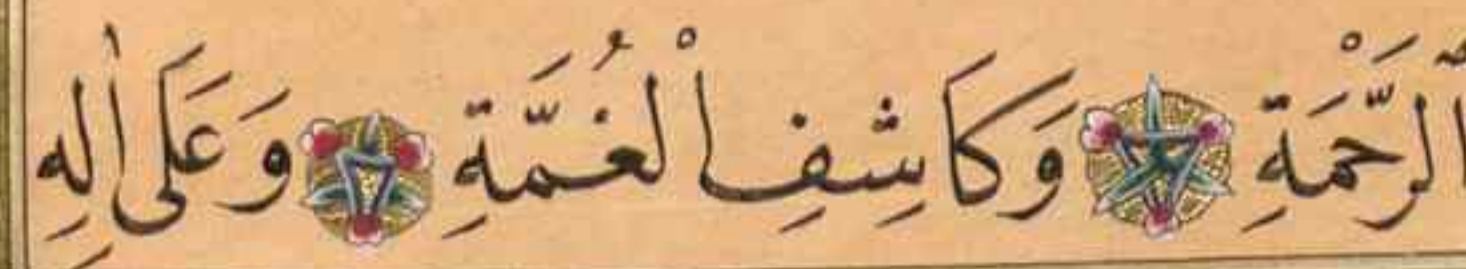 ٱلرَّحْمَةِ وَكَاشِفِ الْغُمَّةِ وَعَلَى اٰلِهِ